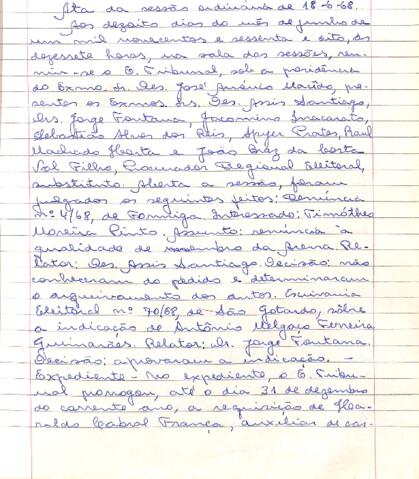 Ata da sessão ordinária de 18-6-68.
Aos dezoito dias do mês de junho de
um mil novecentos e sessenta e oito, às
dezessete horas, na sala das sessões, reu-
niu-se o E. Tribunal, sob a presidência
do Exmo. Sr. Des. José Américo Macêdo, pre-
sentes os Exmos. Srs. Des. Assis Santiago,
Drs. Jorge Fontana, Jacomino Inacarato,
Sebastião Alves dos Reis, Spyer Prates, Raul
Machado Horta e João Braz da Costa
Val Filho, Procurador Regional Eleitoral,
substituto. Aberta a sessão, foram
julgados os seguintes feitos: Renúncia
nº 4/68, de Formiga. Interessado: Timóthe
Moreira Pinto. Assunto: renúncia à
qualidade de membro da Arena. Re-
lator: Des. Assis Santiago. Decisão: não
conheceram do pedido e determinaram
o arquivamento dos autos. Escrivania
Eleitoral nº 70/68, de São Gotardo, sôbre
a indicação de Antônio Melgaço Ferreira
Guimarães. Relator: Dr. Jorge Fontana.
Decisão: aprovaram a indicação. -
Expediente - No expediente, o E. Tribu-
nal prorrogou, até o dia 31 de dezembro
do corrente ano, a requisição de
naldo Cabral França, auxiliar de car-